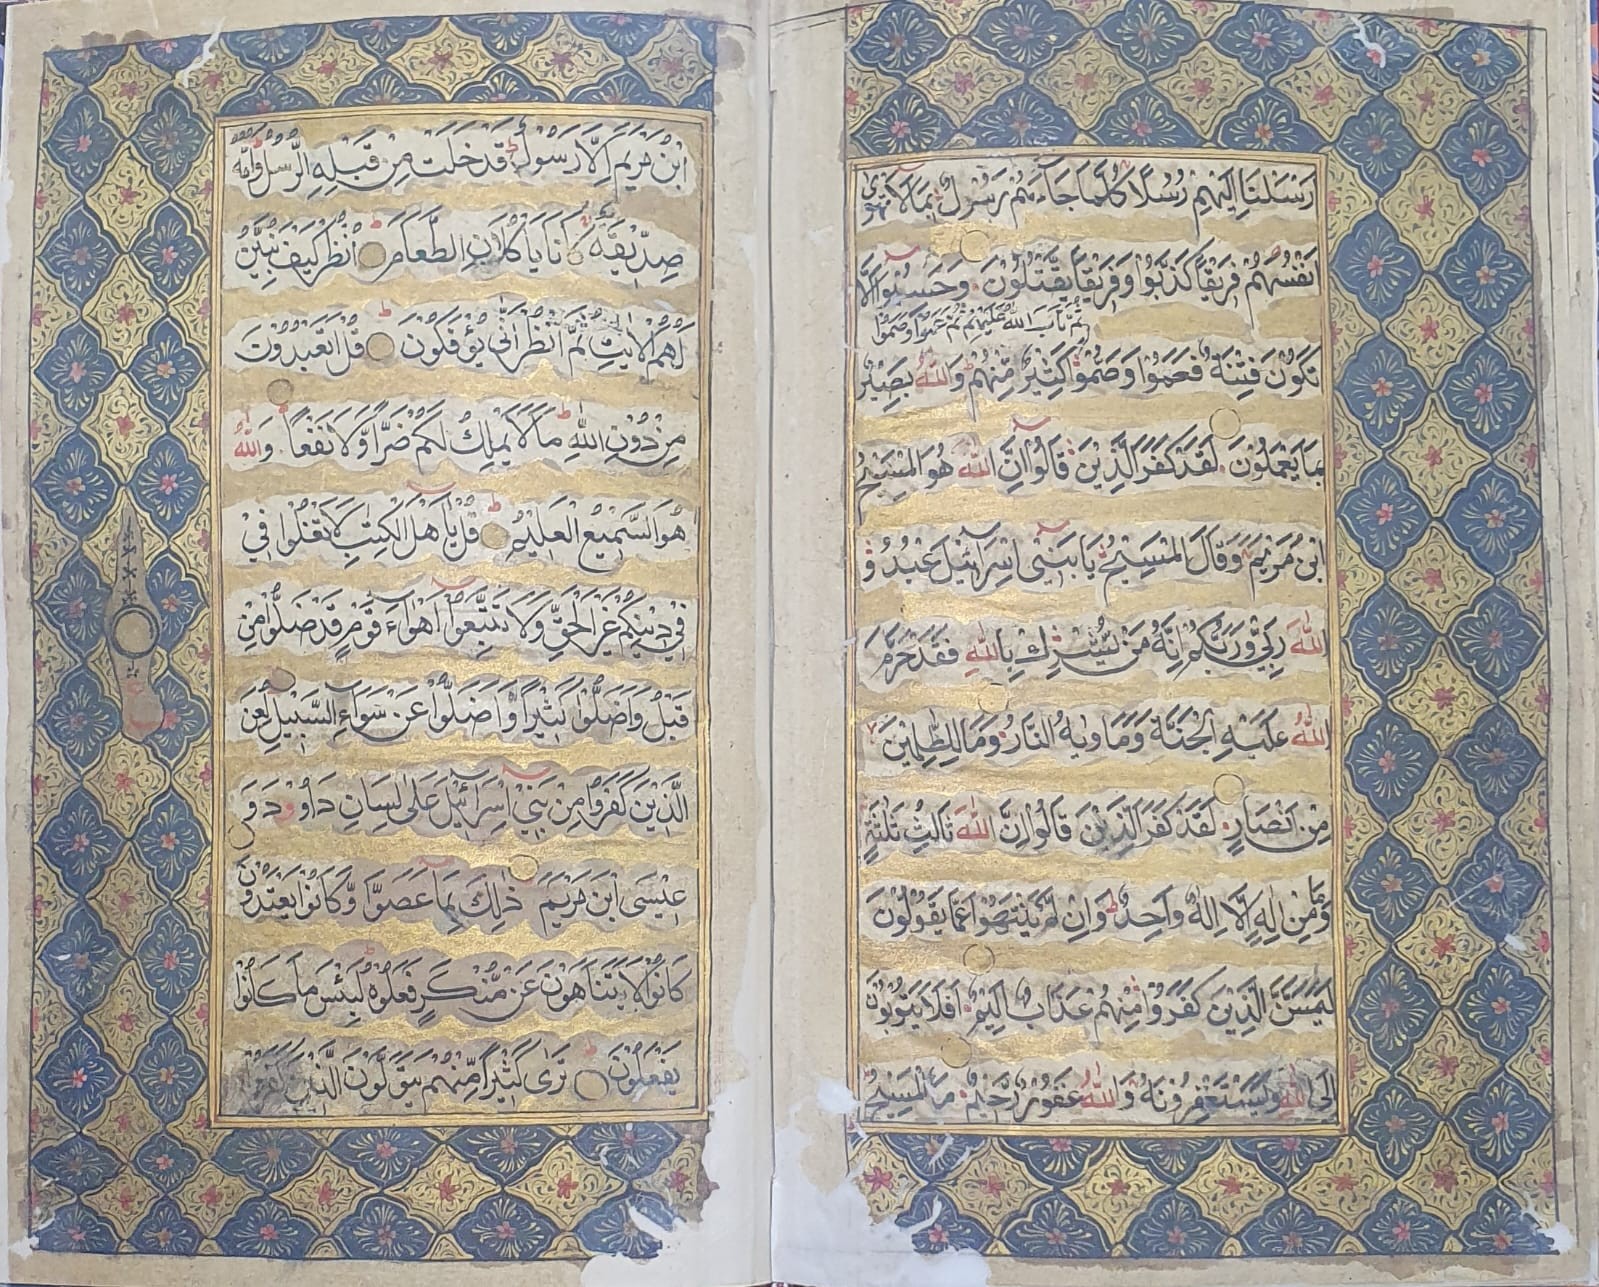 رَسَلنَا اِلَيهِم رُسُلًا كُلَّمَا جَاءَهُم رَسُولٌ بِمَا لَا تَهوٰى
اَنفُسُهُم فَرِيقًا كَذَّبُوا وَفَرِيقًا يَقتُلُونَ وَحَسِبُوا اَلَّا
ثُمَّ تَابَ اللّٰهُ عَلَيهِم ثُمَّ عَمُوا وَصَمُّوا
تَكُونَ فِتنَةٌ فَعَمُوا وَصَمُّوا كَثِيرٌ مِنهُم وَاللّٰهُ بَصِيرٌ
بِمَا يَعمَلُونَ لَقَد كَفَرَ الَّذِينَ قَالُوا اِنَّ اللّٰهَ هُوَ المَسِيحُ
ابنُ مَريَمَ وَقَالَ المَسِيحُ يَا بَنِي اِسرَائِيلَ اعبُدُو
اللّٰهَ رَبِّي وَرَبَّكُم اِنَّهُ مَن يُشرِك بِاللّٰهِ فَقَد حَرَّمَ
اللّٰهُ عَلَيهِ الجَنَّةَ وَمَاوٰيهُ النَّارُ وَمَا لِلظّٰلِمِينَ
مِن اَنصَارٍ لَقَد كَفَرَ الَّذِينَ قَالُوا اِنَّ اللّٰهَ ثَالِثُ ثَلٰثَةٍ
وَمَا مِن اِلٰهٍ اِلَّا اِلٰهٌ وَاحِدٌ وَاِن لَم يَنتَهُوا عَمَّا يَقُولُونَ
لَيَمَسَّنَّ الَّذِينَ كَفَرُوا مِنهُم عَذَابٌ اَلِيمٌ اَفَلَا يَتُوبُونَ
اِلَى اللّٰهِ وَيَستَغفِرُونَهُ وَاللّٰهُ غَفُورٌ رَحِيمٌ مَا المَسِيحُ
ابنُ مَريَمَ اِلَّا رَسُولٌ قَد خَلَت مِن قَبلِهِ الرُّسُلُ وَاُمُّهُ
صِدِّيقَةٌ كَانَا يَاكُلَانِ الطَّعَامَ اُنظُر كَيفَ نُبَيِّنُ
لَهُمُ الاٰيٰتِ ثُمَّ انظُر اَنّٰى يُؤفَكُونَ قُل اَتَعبُدُونَ
مِن دُونِ اللّٰهِ مَا لَا يَملِكُ لَكُم ضَرًّا وَلَا نَفعًا وَاللّٰهُ
هُوَ السَّمِيعُ العَلِيمُ قُل يَا اَهلَ الكِتٰبِ لَا تَغلُوا فِي
فِي دِينِكُم غَيرَ الحَقِّ وَلَا تَتَّبِعُوا اَهوَاءَ قَومٍ قَد ضَلُّوا مِن
قَبلُ وَاَضَلُّوا كَثِيرًا وَاَضَلُّوا عَن سَوَاءِ السَّبِيلِ لُعِنَ
الَّذِينَ كَفَرُوا مِن بَنِي اِسرَائِيلَ عَلٰى لِسَانِ دَاوُودَ وَ
عِيسَى ابنِ مَريَمَ ذٰلِكَ بِمَا عَصَوا وَكَانُوا يَعتَدُونَ
كَانُوا لَا يَتَنَاهَونَ عَن مُنكَرٍ فَعَلُوهُ لَبِئسَ مَا كَانُوا
يَفعَلُونَ تَرٰى كَثِيرًا مِنهُم يَتَوَلَّونَ الَّذِينَ كَفَرُوا